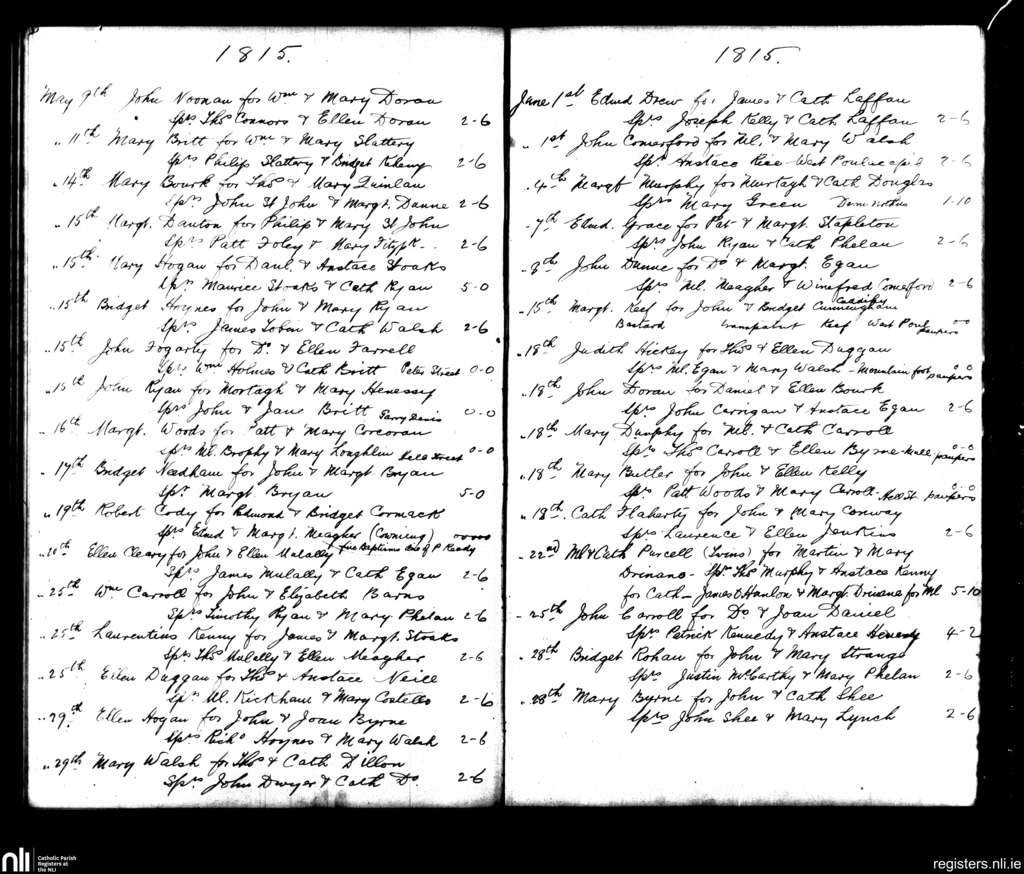 1815.
May 9th John Noonan for Wm & Mary Doran
Sprs Thos Connors & Ellen Doran 2-6
" 11th Mary Britt for Wm & Mary Slattery
Sprs Philip Slattery & Bridget 2-6
" 14th Mary Bourk for Thos & Mary Quinlan
Sprs John St John & Margt. Dunne 2-6
" 15th Margt. Danton for Philip & Mary St John
Sprs Patt Foley & Mary Fitzpk - 2-6
" 15th Mary Hogan for Danl. & Anstace Stoaks
Sprs Maurice Stoaks & Cath Ryan 5-0
" 15th Bridget Hoynes for John & Mary Ryan
Sprs James Tobin & Cath Walsh 2-6
" 15th John Fogarty for Do. & Ellen Farrell
Sprs Wm Holmes & Cath Britt Peter Street 0-0
" 15th John Ryan for Mortagh & Mary Henessy
Sprs John & Jane Britt 0-0
" 16th Margt. Woods for Patt & Mary Corcoran
Sprs Ml. Brophy & Mary Loughlin Street 0-0
" 17th Bridget Needham for John & Margt. Bryan
Spr. Margt Bryan 5-0
" 19th Robert Cody for Edmond & Bridget Cormack
Sprs Edmd & Margt. Meagher (Cowning)
" 20th Ellen Cleary for John & Ellen Mulally five Baptisms P Keady
Sprs James Mulally & Cath Egan 2-6
" 25th Wm Carroll for John & Elizabeth Barns
Sprs Timothy Ryan & Mary Phelan 2-6
" 25th Laurentius Kenny for James & Margt. Stoaks
Sprs Thos Mulally & Ellen Meagher 2-6
" 25th Ellen Duggan for Thos & Anstace Neill
Sprs Ml. Kickham & Mary Costello 2-6
" 29th Ellen Hogan for John & Joan Byrne
Sprs Richd Hoynes & Mary Walsh 2-6
" 29th Mary Walsh for Thos & Cath Dillon
Sprs John Dwyer & Cath Do. 2-6
1815.
June 1st Edmd Drew for James & Cath Laffan
Sprs Joseph Kelly & Cath Laffan 2-6
" 1st John Comerford for Ml. & Mary Walsh
Spr. Anstace Rice - West 2-6
" 4th Margt Murphy for Murtagh & Cath Douglas
Sprs Mary Green 1-10
" 7th Edmd. Grace for Pat & Margt. Stapleton
Sprs John Ryan & Cath Phelan 2-6
" 8th John Dunne for Do & Margt. Egan
Sprs Ml. Meagher & Winefred Comerford 2-6
" 15th Margt. Keef for John & Bridget Cunningham
Bastard Keef West paupers 00
" 18th Judith Hickey for Thos & Ellen Duggan
Sprs Ml. Egan & Mary Walsh - Mountain foot paupers 0-0
" 18th John Doran for Daniel & Ellen Bourk
Sprs John Carrigan & Anstace Egan 2-6
" 18th Mary Dunphy for Ml. & Cath Carroll
Sprs Thos Carroll & Ellen Byrne paupers 0-0
" 18th Mary Butler for John & Ellen Kelly
Sprs Patt Woods & Mary Carroll - St. paupers 0-0
" 18th. Cath Flaherty for John & Mary Conway
Sprs Laurence & Ellen Jenkins 2-6
" 22nd Ml & Cath Purcell (Twins) for Martin & Mary
Drinane - Sprs Thos Murphy & Anstace Kenny
for Cath - James O'Hanlon & Margt. Drinane for Ml 5-10
" 25th John Carroll for Do & Joan Daniel
Sprs Patrick Kennedy & Anstace Henesy 4-2
" 28th Bridget Rohan for John & Mary Strange
Sprs Justin McCarthy & Mary Phelan 2-6
" 28th Mary Byrne for John & Cath Shee
Sprs John Shee & Mary Lynch 2-6
nli Catholic Parish Registers at the NLI
registers.nli.ie